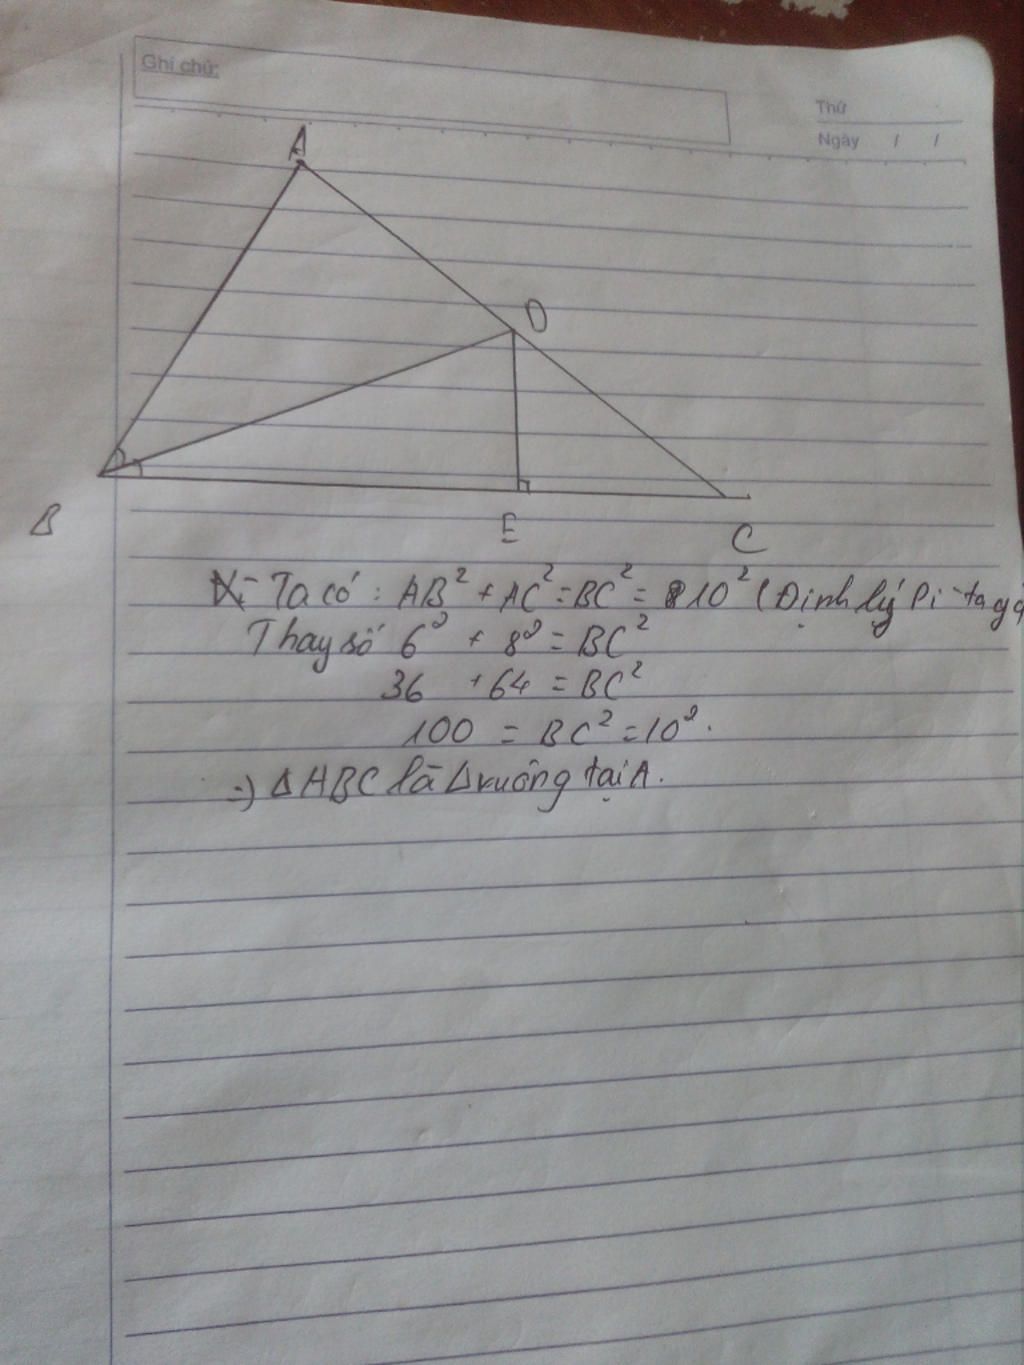 Ghi chú:
Thứ
Ngày / /
A
D
B
E
C
Ta có : AB² + AC² = BC² = 10² (Định lý Pi-tago
Thay số 6² + 8² = BC²
36 + 64 = BC²
100 = BC² = 10².
=) Δ ABC là Δ vuông tại A.